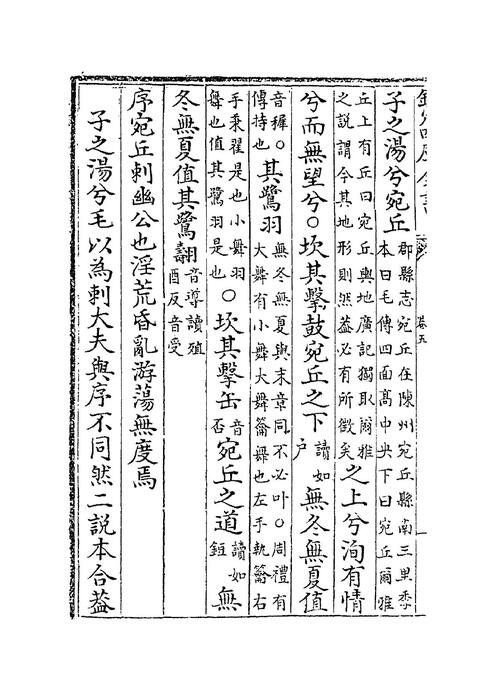 欽定四庫全書 卷五 一
子之湯兮宛丘郡縣志宛丘在陳州宛丘縣南三里季
本曰毛傳四面髙中央下曰宛丘爾雅
丘上有丘曰宛丘輿地廣記獨取爾雅
之説謂今其地形則然葢必有所徴矣之上兮洵有情
兮而無望兮○坎其擊鼓宛丘之下讀如户無冬無夏值
音穉○傳持也其鷺羽無冬無夏與末章同不必叶○周禮有
大舞有小舞大舞籥舞也左手執籥右
手秉翟是也小舞羽
舞也值其鷺羽是也○坎其擊缶音否宛丘之道讀如鋀無
冬無夏值其鷺翿音導讀殖酉反音受
序宛丘刺幽公也淫荒昏亂游蕩無度焉
子之湯兮毛以為刺大夫與序不同然二説本合葢